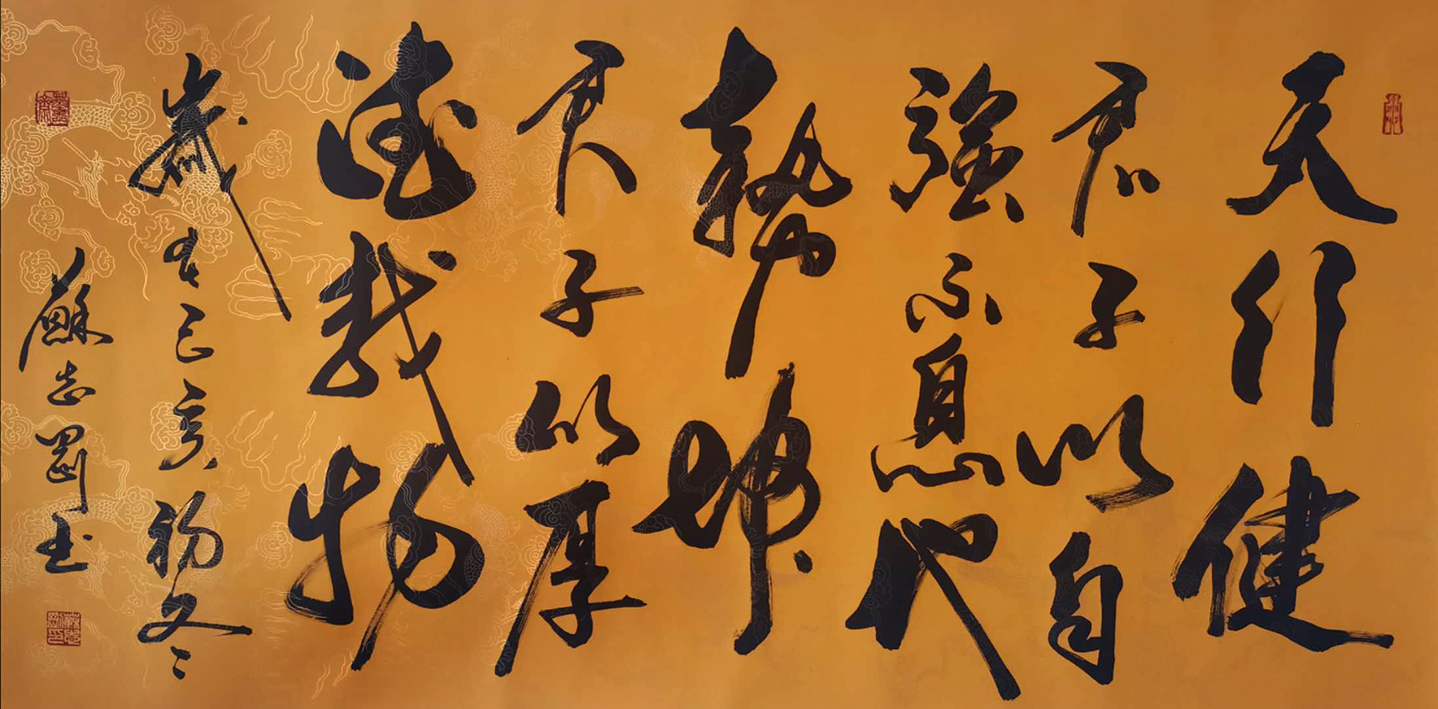 天行健
君子以自
強不息地
勢坤
君子以厚
德載物
歲在己亥初冬
蘇志剛書